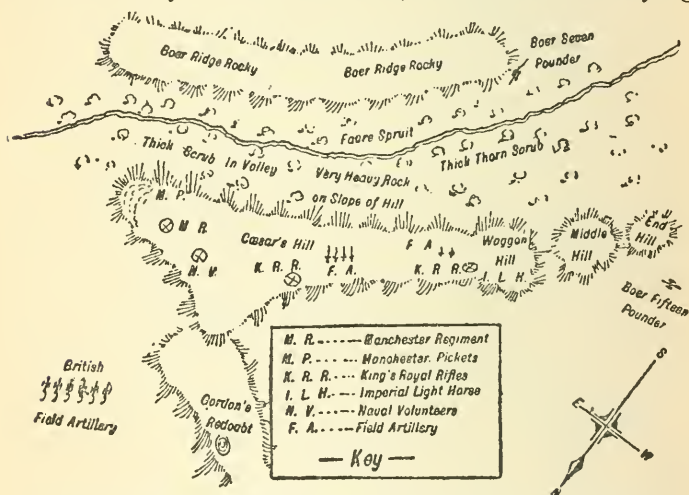 Boer Ridge Rocky
Boer Ridge Rocky
Boer Seven
Pounder
Faure Spruit
Thick Scrub In Valley
Very Heavy Rock
Thick Thorn Scrub
on Slope of Hill
M. P.
M R.
N. V.
Cæsar's Hill
K. R. R.
F. A.
F A
K R R.
Waggon
Hill
I. L. H.
Middle
Hill
End
Hill
Boer Fifteen
Pounder
British
Field Artillery
Gordon's
Redoubt
M. R. Manchester Regiment
M. P. Manchester. Pickets
K. R. R. King's Royal Rifles
I. L. H. Imperial Light Horse
N. V. Naval Volunteers
F. A. Field Artillery
— Key —
S
E
W
N